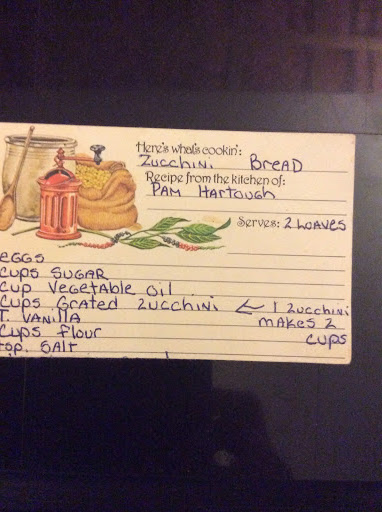 Here's what's cookin':
Zucchini Bread
Recipe from the kitchen of:
Pam Hartough
Serves: 2 Loaves
EGGS
cups SUGAR
cup Vegetable Oil
cups Grated Zucchini ← 1 Zucchini
T. Vanilla makes 2
cups flour cups
tsp. Salt